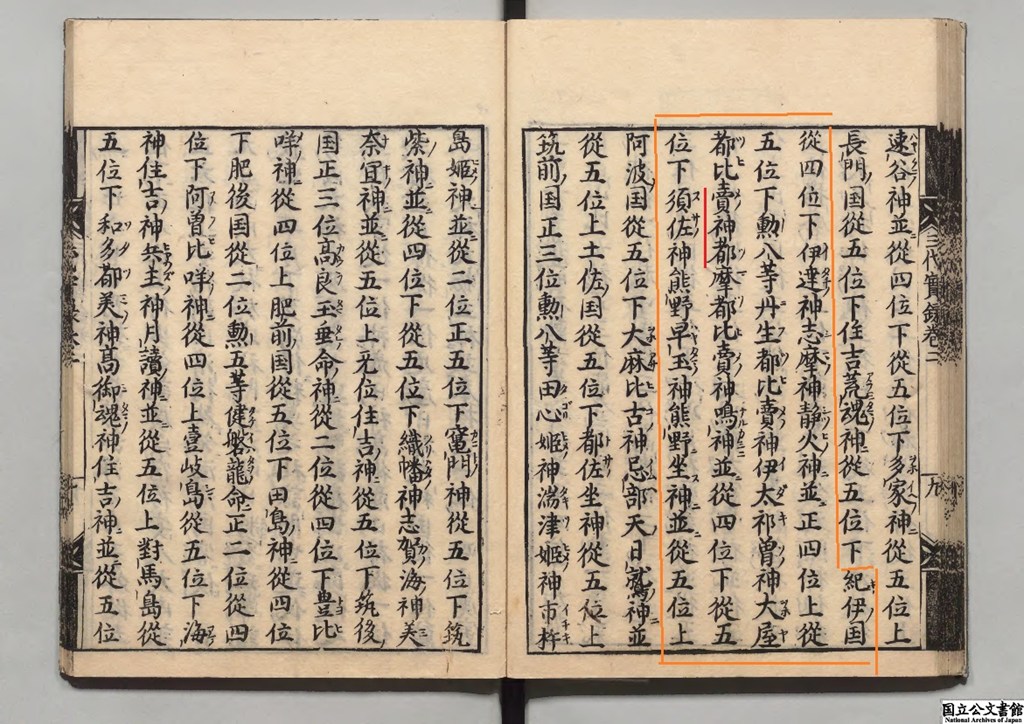 速谷神並從四位下從五位下多家神從五位上
長門国從五位下住吉荒魂神從五位下紀伊国
從四位下伊達神志摩神静火神並正四位上從
五位下勲八等丹生都比賣神伊太祁曽神大屋
都比賣神都摩都比賣神鳴神並從四位下從五
位下須佐神熊野早玉神熊野坐神並從五位上
阿波国從五位下大麻比古神忌部天日鷲神並
從五位上土佐国從五位下都佐坐神從五位上
筑前国正三位勲八等田心姬神湍津姬神市杵
三代實録卷二
九
島姬神並從二位正五位下竃門神從五位下筑
紫神並從四位下從五位下織幡神志賀海神美
奈宜神並從五位上无位住吉神從五位下筑後
国正三位髙良玉垂命神從二位從四位下豊比
咩神從四位上肥前国從五位下田島神從四位
下肥後国從二位勲五等健磐龍命正二位從四
位下阿曽比咩神從四位上壹岐島從五位下海
神住吉神兵主神月讀神並從五位上對馬島從
五位下和多都美神髙御魂神住吉神並從五位
国立公文書館
National Archives of Japan